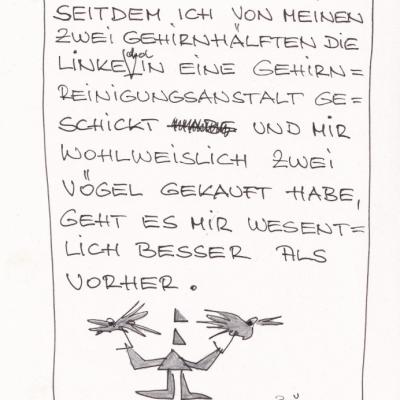 SEITDEM ICH VON MEINEN
ZWEI GEHIRNHÄLFTEN DIE
LINKE IN EINE GEHIRN=
REINIGUNGSANSTALT GE=
SCHICKT UND MIR
WOHLWEISLICH ZWEI
VÖGEL GEKAUFT HABE,
GEHT ES MIR WESENT=
LICH BESSER ALS
VORHER.